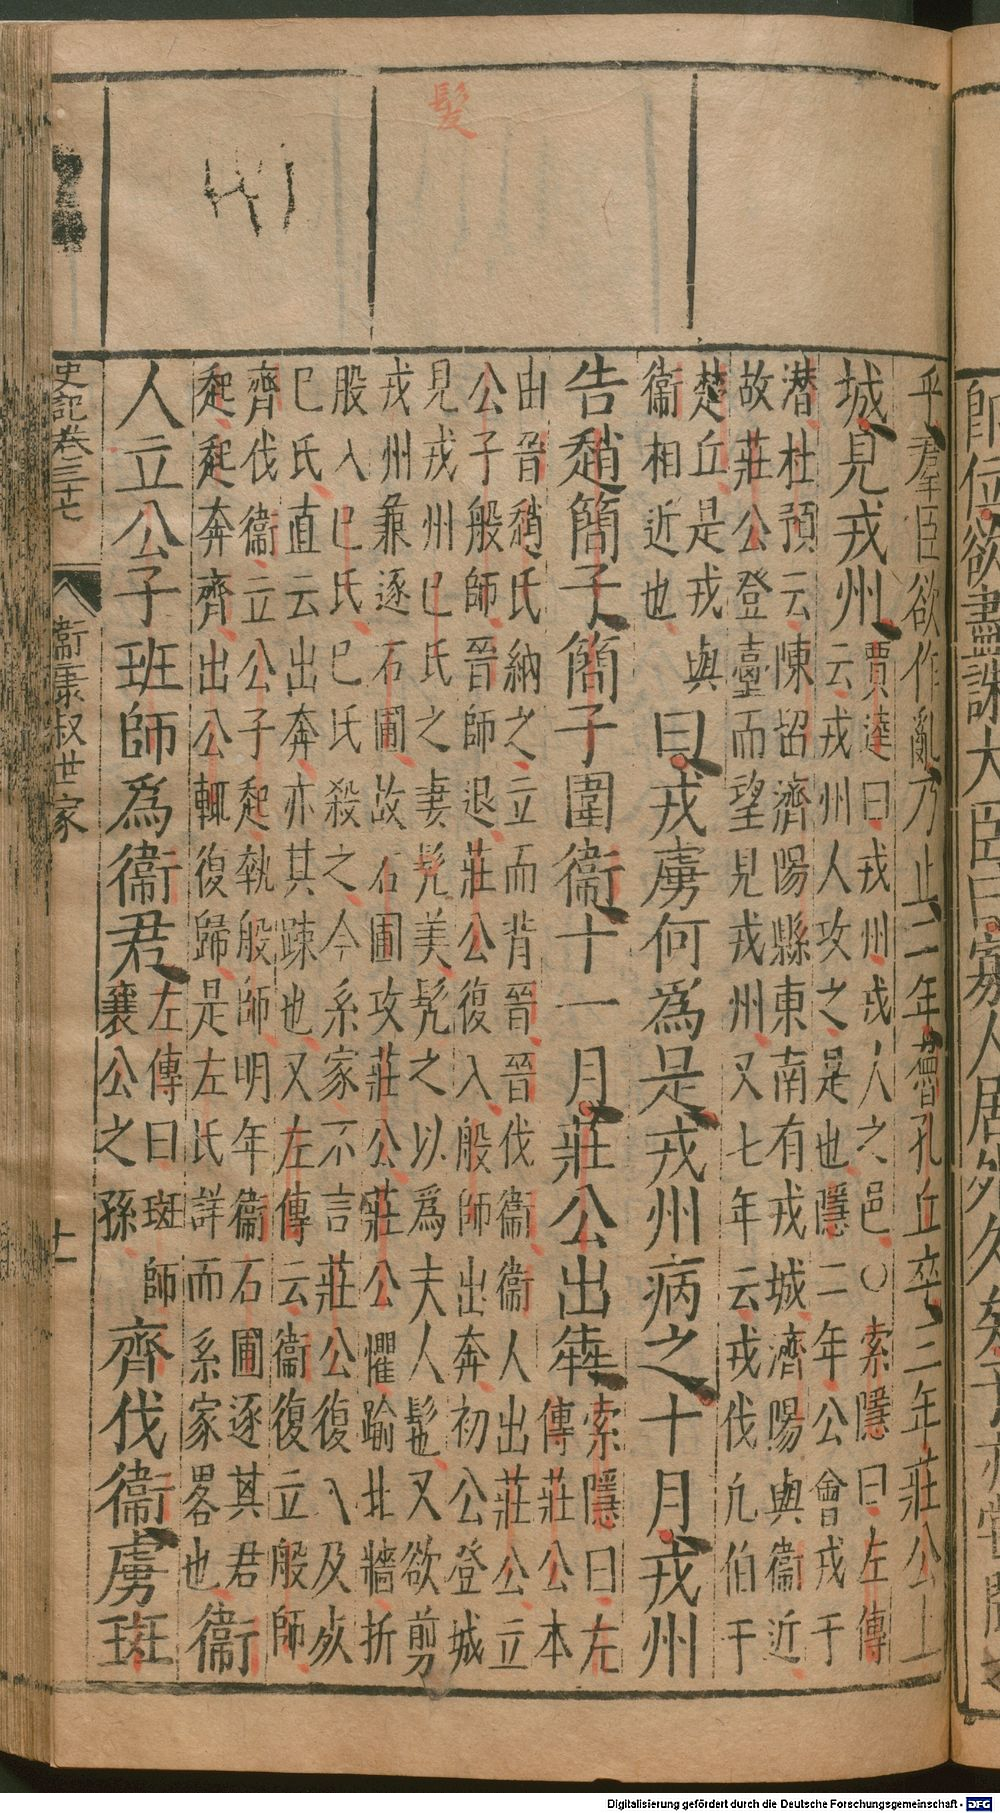 髮
乎羣臣欲作亂乃止二年魯孔丘卒三年莊公上
城見戎州
賈逵曰戎州戎人之邑〇索隱曰左傳
云戎州人攻之是也隱二年公會戎于
潜杜預云陳留濟陽縣東南有戎城濟陽與衞近
故莊公登臺而望見戎州又七年云戎伐凡伯于
楚丘是戎與
衞相近也
曰戎虜何爲是戎州病之十月戎州
告趙簡子簡子圍衞十一月莊公出犇
索隱曰左
傳莊公本
由晉趙氏納之立而背晉晉伐衞衞人出莊公立
公子般師晉師退莊公復入般師出奔初公登城
見戎州巳氏之妻髠美髠之以爲夫人髢又欲剪
戎州兼逐石圃故石圃攻莊公莊公懼踰北牆折
股入巳氏巳氏殺之今系家不言莊公復入及死
巳氏直云出奔亦其疎也又左傳云衞復立般師
齊伐衞立公子起執般師明年衞石圃逐其君
起起奔齊出公輒復歸是左氏詳而系家畧也
衞
人立公子班師爲衞君
左傳曰斑師
襄公之孫
齊伐衞虜斑
史記卷三十七 衞康叔世家 十一
師位欲盡誅大臣曰寡人居外久矣子亦嘗聞之
Digitalisierung gefördert durch die Deutsche Forschungsgemeinschaft - DFG